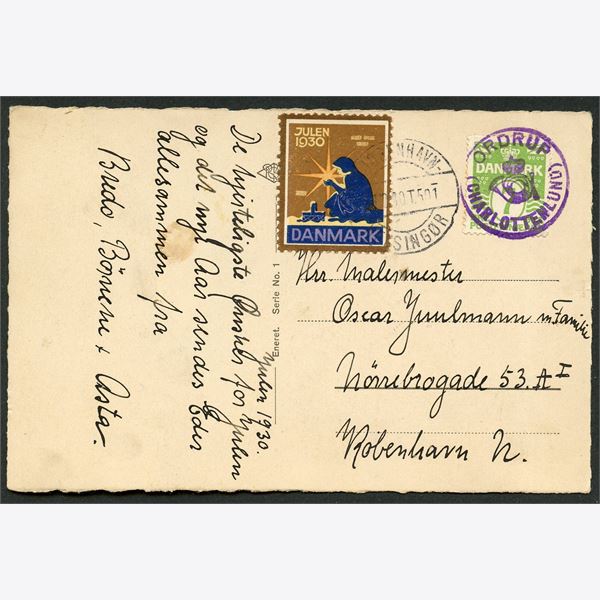 De hjerteligste Ønsker for Julen
og det nye Aar sendes Eder
allesammen fra
Börnene + Asta.
Julen 1930.
Eneret. Serie No. 1
JULEN
1930
DANMARK
KØBENHAVN
HELSINGØR
ORDRUP
(CHARLOTTENLUND)
DANMARK
7
Hrr. Malermester
Oscar Juulmann m Familie
Nörrebrogade 53. A I
København N.